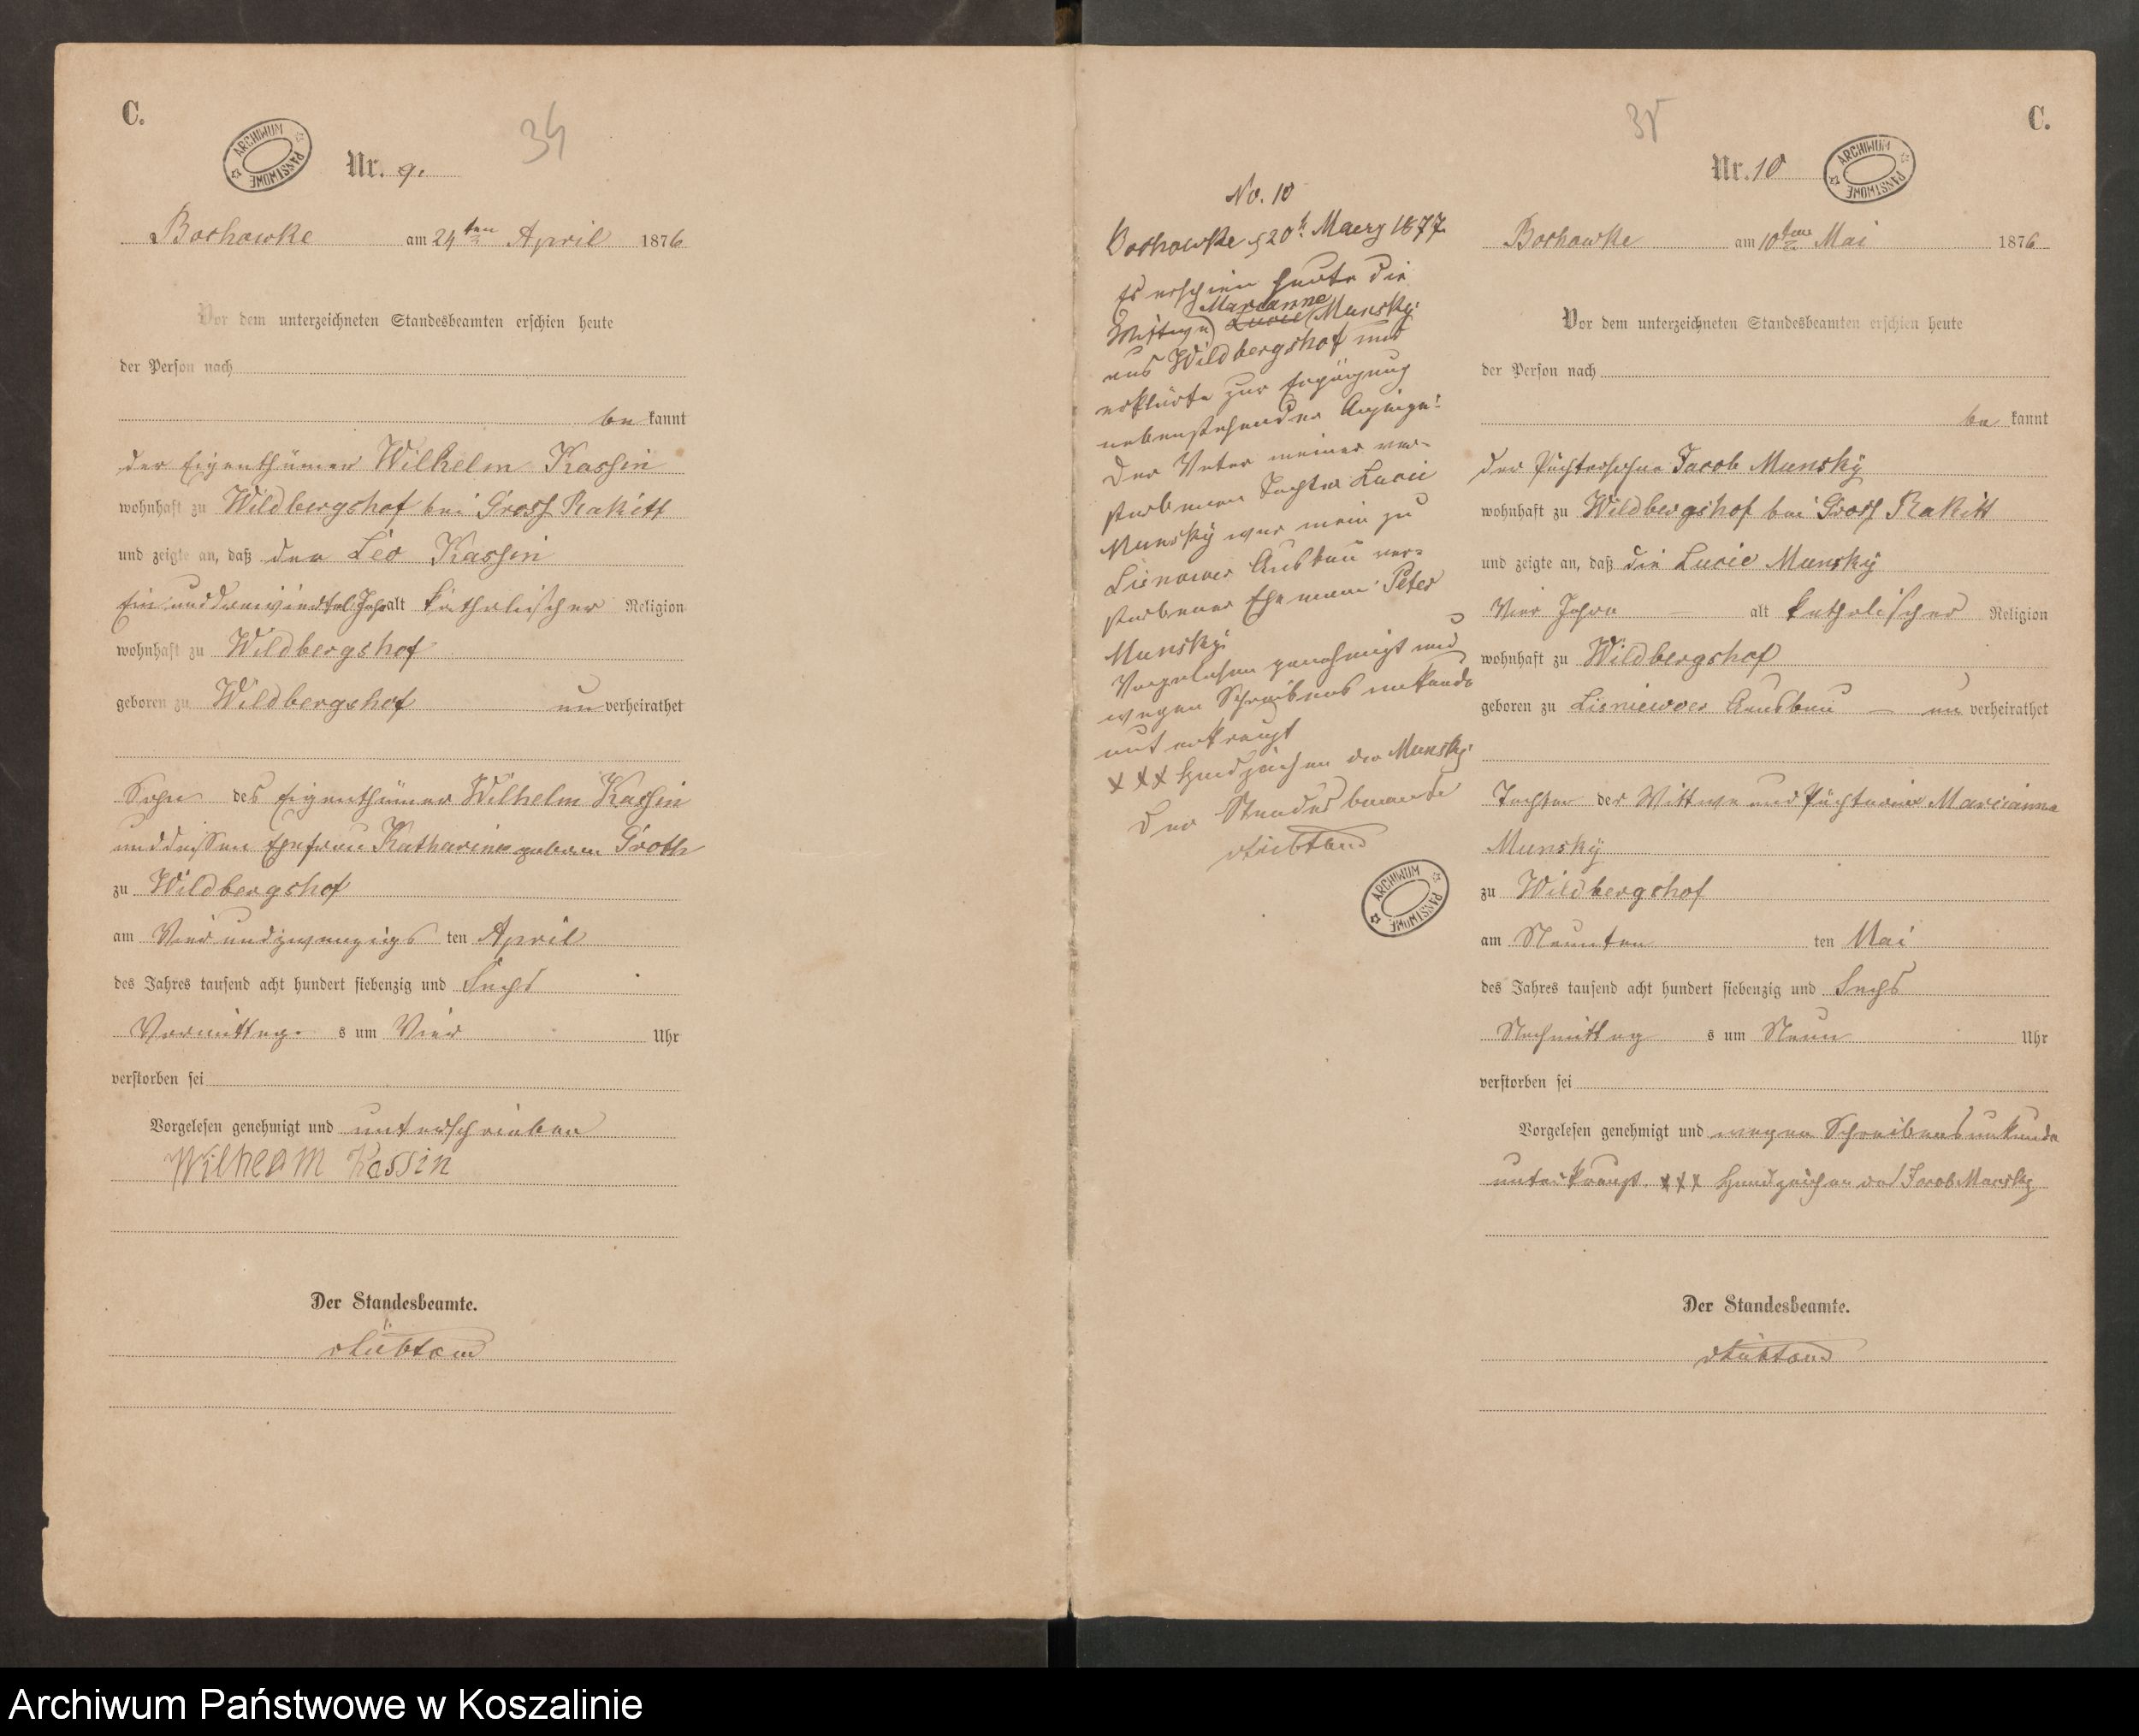 C.
34
ARCHIWUM PAŃSTWOWE
Nr. 9.
Borkowke am 24ten April 1876
Vor dem unterzeichneten Standesbeamten erschien heute
der Person nach
be kannt
der Eigenthümer Wilhelm Kassin
wohnhaft zu Wildbergshof bei Gross Rakitt
und zeigte an, daß der Leo Kassin
Ein und dreiviertel Jahr alt katholischer Religion
wohnhaft zu Wildbergshof
geboren zu Wildbergshof un verheirathet
Sohn des Eigenthümer Wilhelm Kassin
und dessen Ehefrau Katharine geboren Groth
zu Wildbergshof
am Vier und zwanzigs ten April
des Jahres tausend acht hundert siebenzig und Sechs
Vormittag s um Vier Uhr
verstorben sei
Vorgelesen genehmigt und unterschrieben
Wilhelm Kassin
Der Standesbeamte.
No. 10
Borkowke d 20t Maerz 1877.
Es erschien heute die
Marianne
Wittwe Lucie Munsky
aus Wildbergshof und
erklärte zur Ergänzung
nebenstehender Anzeige:
Der Vater meiner ver-
storbenen Tochter Lucie
Munsky war mein zu
Ausbau ver-
storbener Ehemann Peter
Munsky.
Vorgelesen genehmigt und
wegen Schreibens unkunde
unterkreuzt
XXX Handzeichen der Munsky
Der Standesbeamte
ARCHIWUM PAŃSTWOWE
C.
35
Nr. 10
ARCHIWUM PAŃSTWOWE
Borkowke am 10ten Mai 1876
Vor dem unterzeichneten Standesbeamten erschien heute
der Person nach
be kannt
der Pächtersohn Jacob Munsky
wohnhaft zu Wildbergshof bei Gross Rakitt
und zeigte an, daß die Lucie Munsky
Vier Jahre alt katholischer Religion
wohnhaft zu Wildbergshof
geboren zu Lisniewoer Ausbau un verheirathet
Tochter der Wittwe und Pächterin Marianna
Munsky
zu Wildbergshof
am Neunten ten Mai
des Jahres tausend acht hundert siebenzig und Sechs
Nachmittag s um Neun Uhr
verstorben sei
Vorgelesen genehmigt und wegen Schreibens unkunde
unterkreuzt. XXX Handzeichen des Jacob Munsky
Der Standesbeamte.
Archiwum Państwowe w Koszalinie